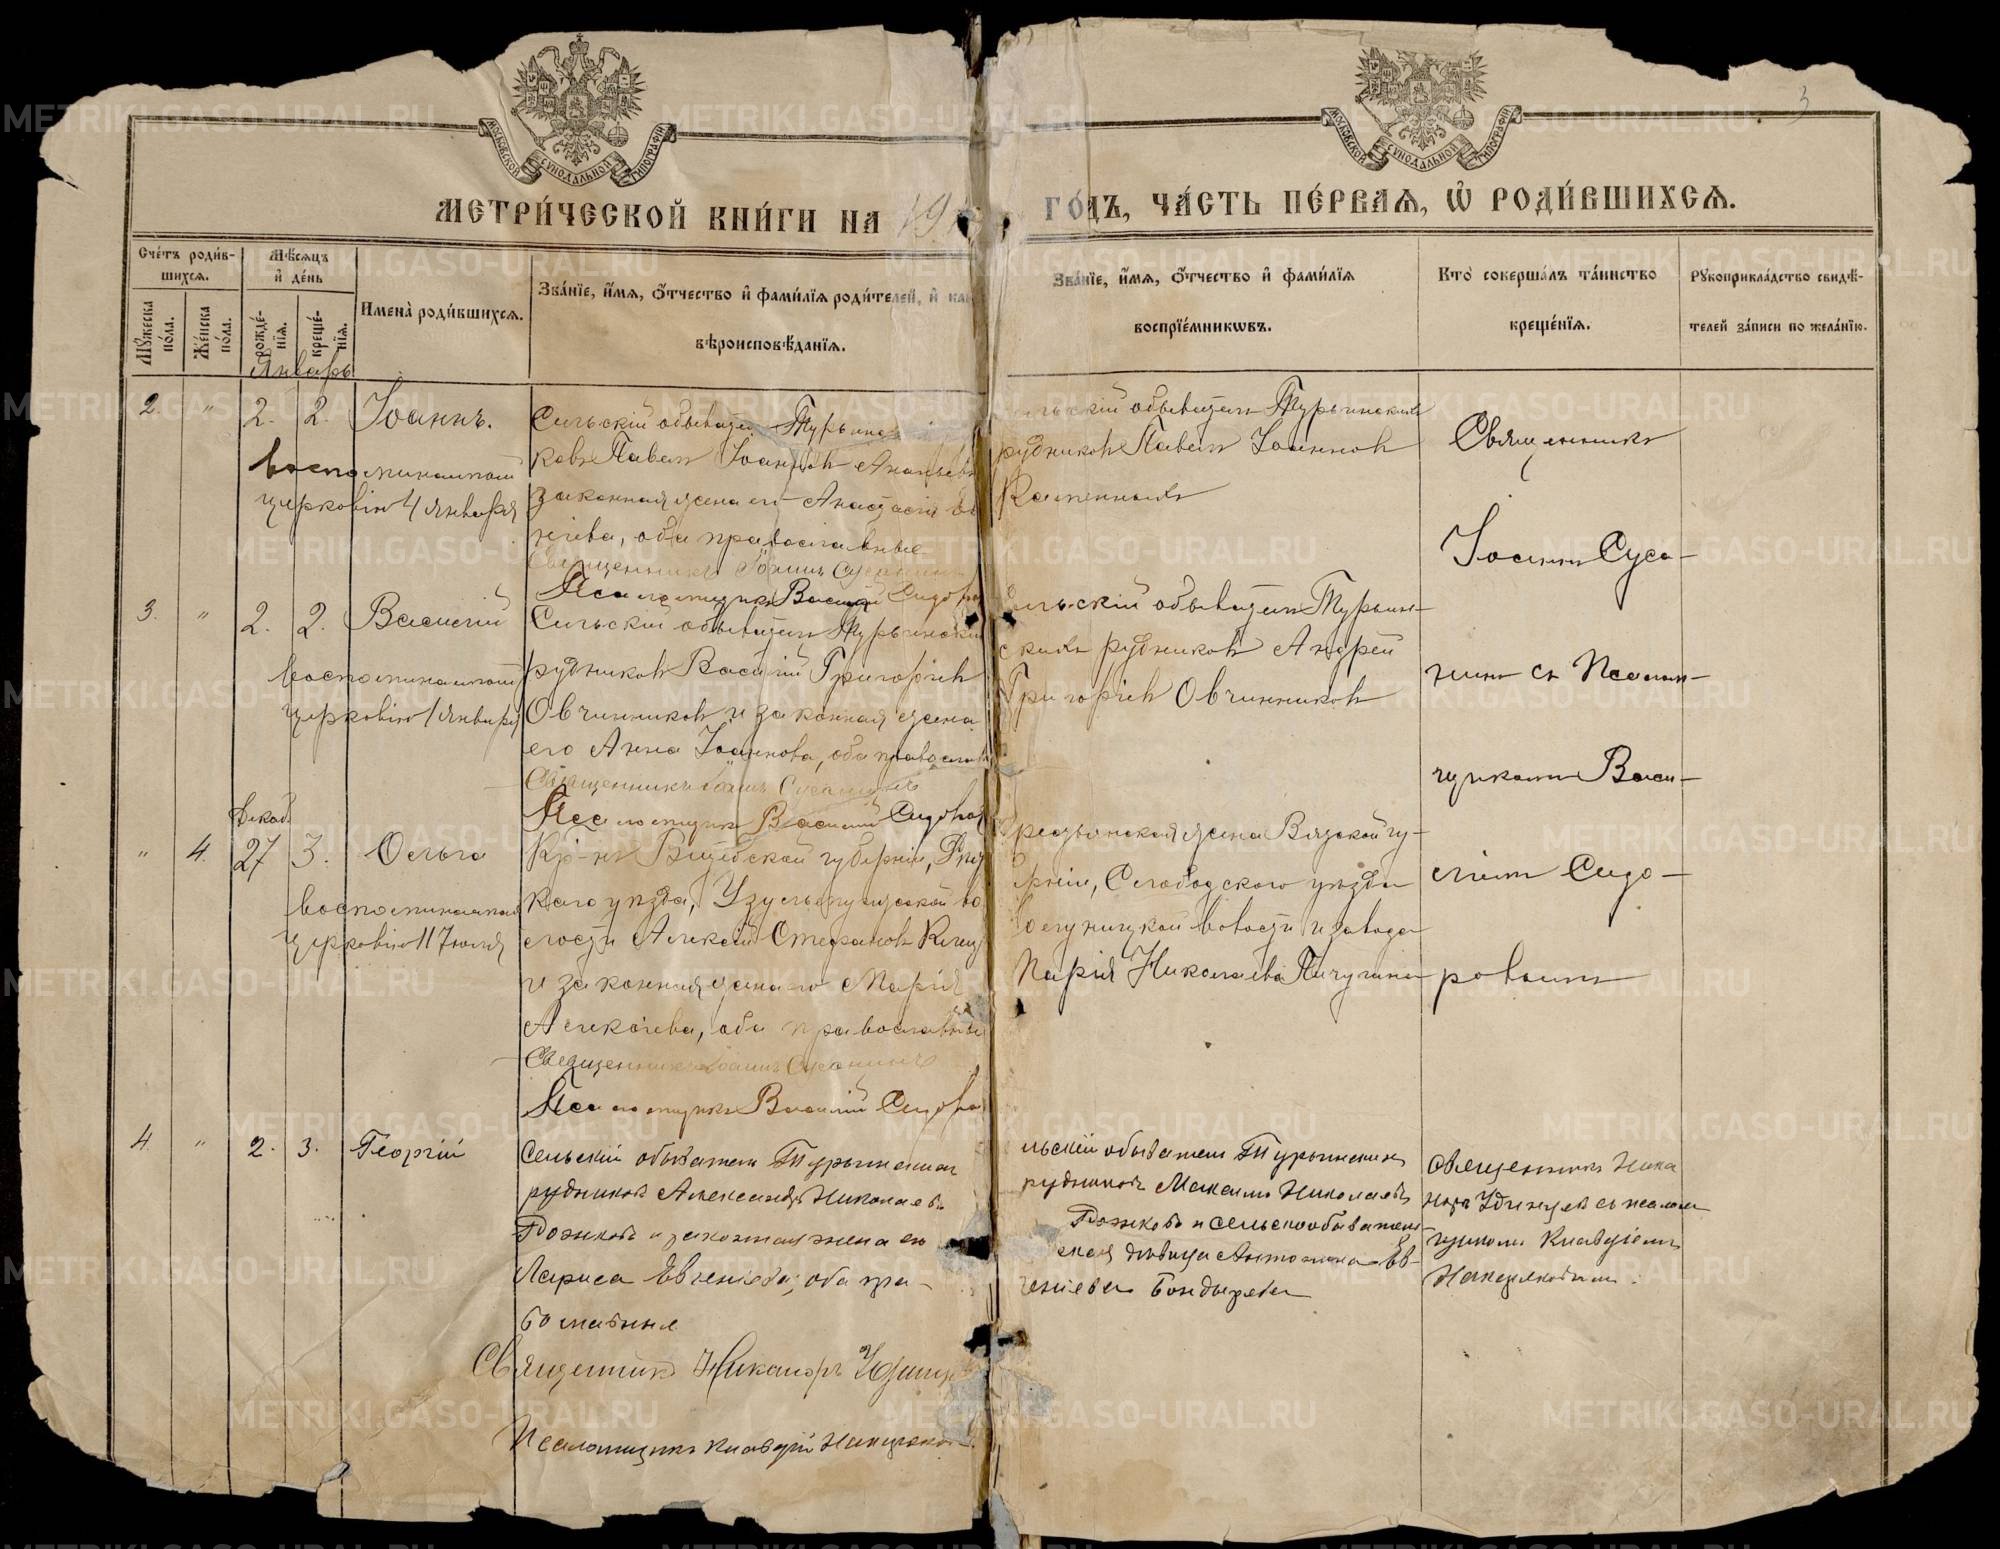 МОСКОВСКОЙ СѴНОДАЛЬНОЙ ТИПОГРАФІИ
МОСКОВСКОЙ СѴНОДАЛЬНОЙ ТИПОГРАФІИ
3
МЕТРИ́ЧЕСКОЙ КНИ́ГИ НА 19
ГО́ДЪ, ЧА́СТЬ ПЕ́РВАЯ, Ѡ҆ РОДИ́ВШИХСЯ.
Счетъ роди́в-
шихся.
Мѣсяцъ
и҆ де́нь
Мꙋжеска по́ла.
Же́нска по́ла.
рожде́-
нїя.
креще́-
нїя.
Имена̀ роди́вшихся.
Зва́нїе, и҆́мя, ѻ҆́тчество и҆ фами́лїя роди́телей, и҆ как
вѣроисповѣ́данїя.
Зва́нїе, и҆́мя, ѻ҆́тчество и҆ фами́лїя
воспрїе́мникѡвъ.
Кто̀ соверша́лъ та́инство
креще́нїя.
Рꙋкоприкла́дство свидѣ́-
телей за́писи по жела́нїю.
Январь
2. " 2. 2. Іоаннъ.
воспоминаемый
церковію 4 января
Сельскій обыватель Турьинс
ковъ Павелъ Іоанновъ Ананьевъ
законная жена его Анастасія Ев
ніева, оба православные
Священникъ Іоаннъ Сусанинъ
Псаломщикъ Василій Сидоров
льскій обыватель Турьинскихъ
рудниковъ Павелъ Іоанновъ
Священникъ
Іоаннъ Суса-
нинъ съ Псалом-
щикомъ Васи-
ліемъ Сидо-
ровымъ
3. " 2. 2. Василій
воспоминаемый
церковію 1 января
Сельскій обыватель Турьински
рудниковъ Василій Григорьевъ
Овчинниковъ и законная жена
его Анна Іоаннова, оба православ
Священникъ Іоаннъ Сусанинъ
Псаломщикъ Василій Сидоров
льскій обыватель Турьин-
скихъ рудниковъ Андрей
Григорьевъ Овчинниковъ
Декаб.
" 4. 27 3. Ольга
воспоминаемая
церковію 11 Іюля
Кр-нъ Витебской губерніи,
каго уѣзда, во
лости Алексѣй Стефановъ
и законная жена его Марія
Алексѣева, оба православные
Священникъ Іоаннъ Сусанинъ
Псаломщикъ Василій Сидоров
рестьянская жена Вятской гу-
берніи, Слободского уѣзда
волости и завода
Марія Николаева Пичугина
4. " 2. 3. Георгій
Сельскій обыватель Турьинскихъ
рудниковъ Александръ Николаевъ
и законная жена его
Лариса Евгеніева, оба пра-
вославные
Священникъ Никаноръ Удинцев
Псаломщикъ Клавдій
льскій обыватель Турьинскихъ
рудниковъ Максимъ Николаевъ
и сельскообыватель-
ская дѣвица Антонина Ев-
геніева Бондырева
Священникъ Ника
норъ Удинцевъ съ псалом-
щикомъ Клавдіемъ